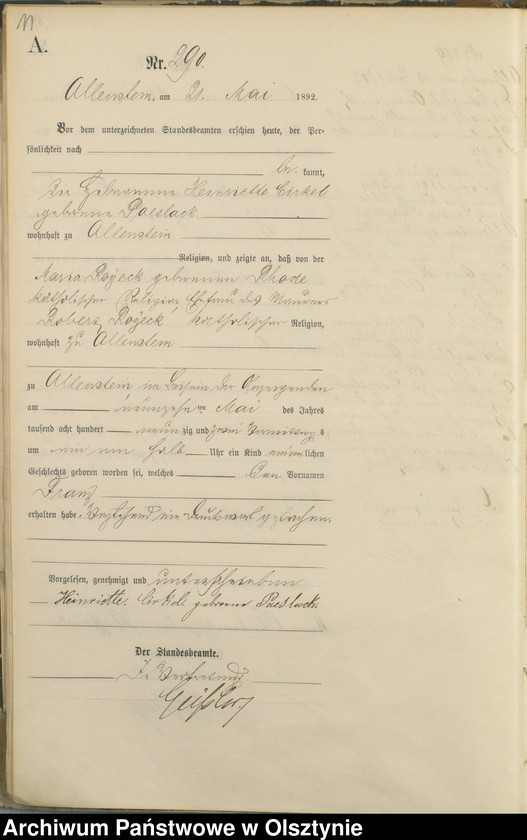 11
A.
Nr. 290.
Allenstein, am 21. Mai 1892.
Vor dem unterzeichneten Standesbeamten erschien heute, der Per-
sönlichkeit nach
be kannt,
die Hebeamme Henriette Cirkel
geborene Paeslack
wohnhaft zu Allenstein
Religion, und zeigte an, daß von der
Maria Rojeck geborenen Rhode
katholischer Religion, Ehefrau des Maurers
Robert Rojeck, katholischer Religion,
wohnhaft zu Allenstein
zu Allenstein im Beisein der Anzeigenden
am neunzehnten Mai des Jahres
tausend acht hundert neun zig und zwei Vormittags
um ein ein halb Uhr ein Kind männlichen
Geschlechts geboren worden sei, welches den Vornamen
Franz
erhalten habe. Vorstehend ein Druckwort gestrichen.
Vorgelesen, genehmigt und unterschrieben
Henriette Cirkel geborene Paeslack
Der Standesbeamte.
In Vertretung
Archiwum Państwowe w Olsztynie